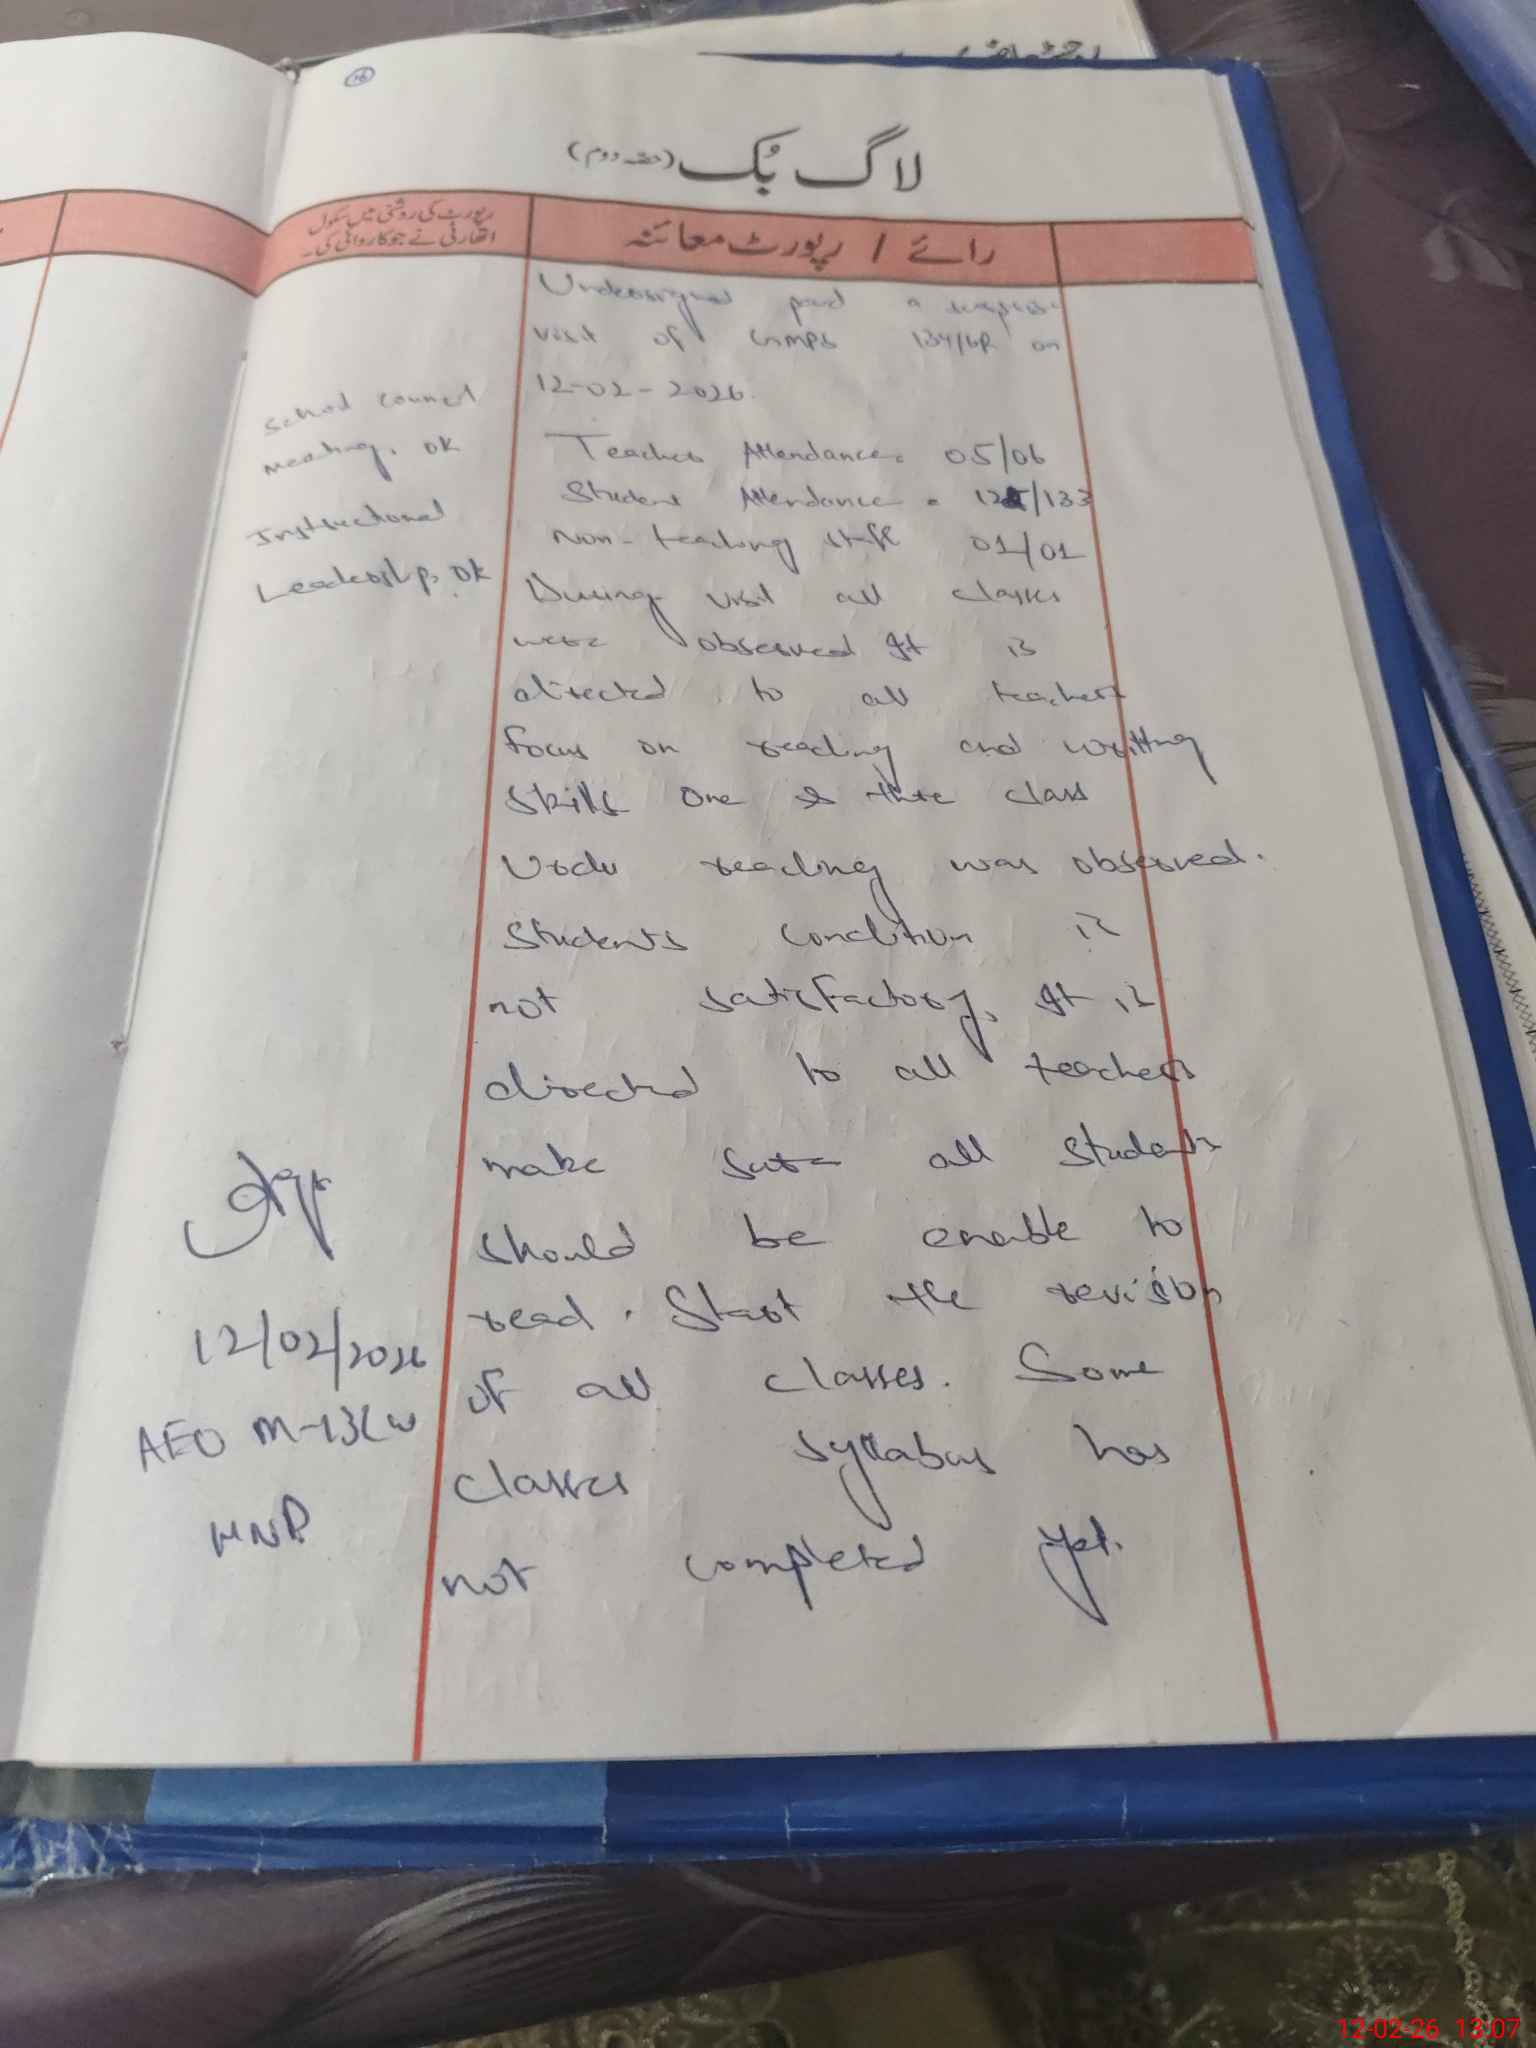 16
لاگ بُک (حصہ دوم)
رائے / رپورٹ معائنہ
رپورٹ کی روشنی میں سکول
اتھارٹی نے جو کاروائی کی۔
Undersigned paid a surprise
visit of GMPS 134/6R on
12-02-2026.
Teacher Attendance = 05/06
Student Attendance = 125/133
Non-teaching staff 01/01
During visit all classes
were observed It is
directed to all teachers
focus on reading and writting
skills One & three class
Urdu reading was observed.
Students condition is
not satisfactory. It is
directed to all teachers
make sure all students
should be enable to
read. Start the revision
of all classes. Some
classes syllabus has
not completed yet.
School council
Meeting. OK
Instructional
Leadership. OK
12/02/2026
AEO M-13
HNR
12-02-26 13:07